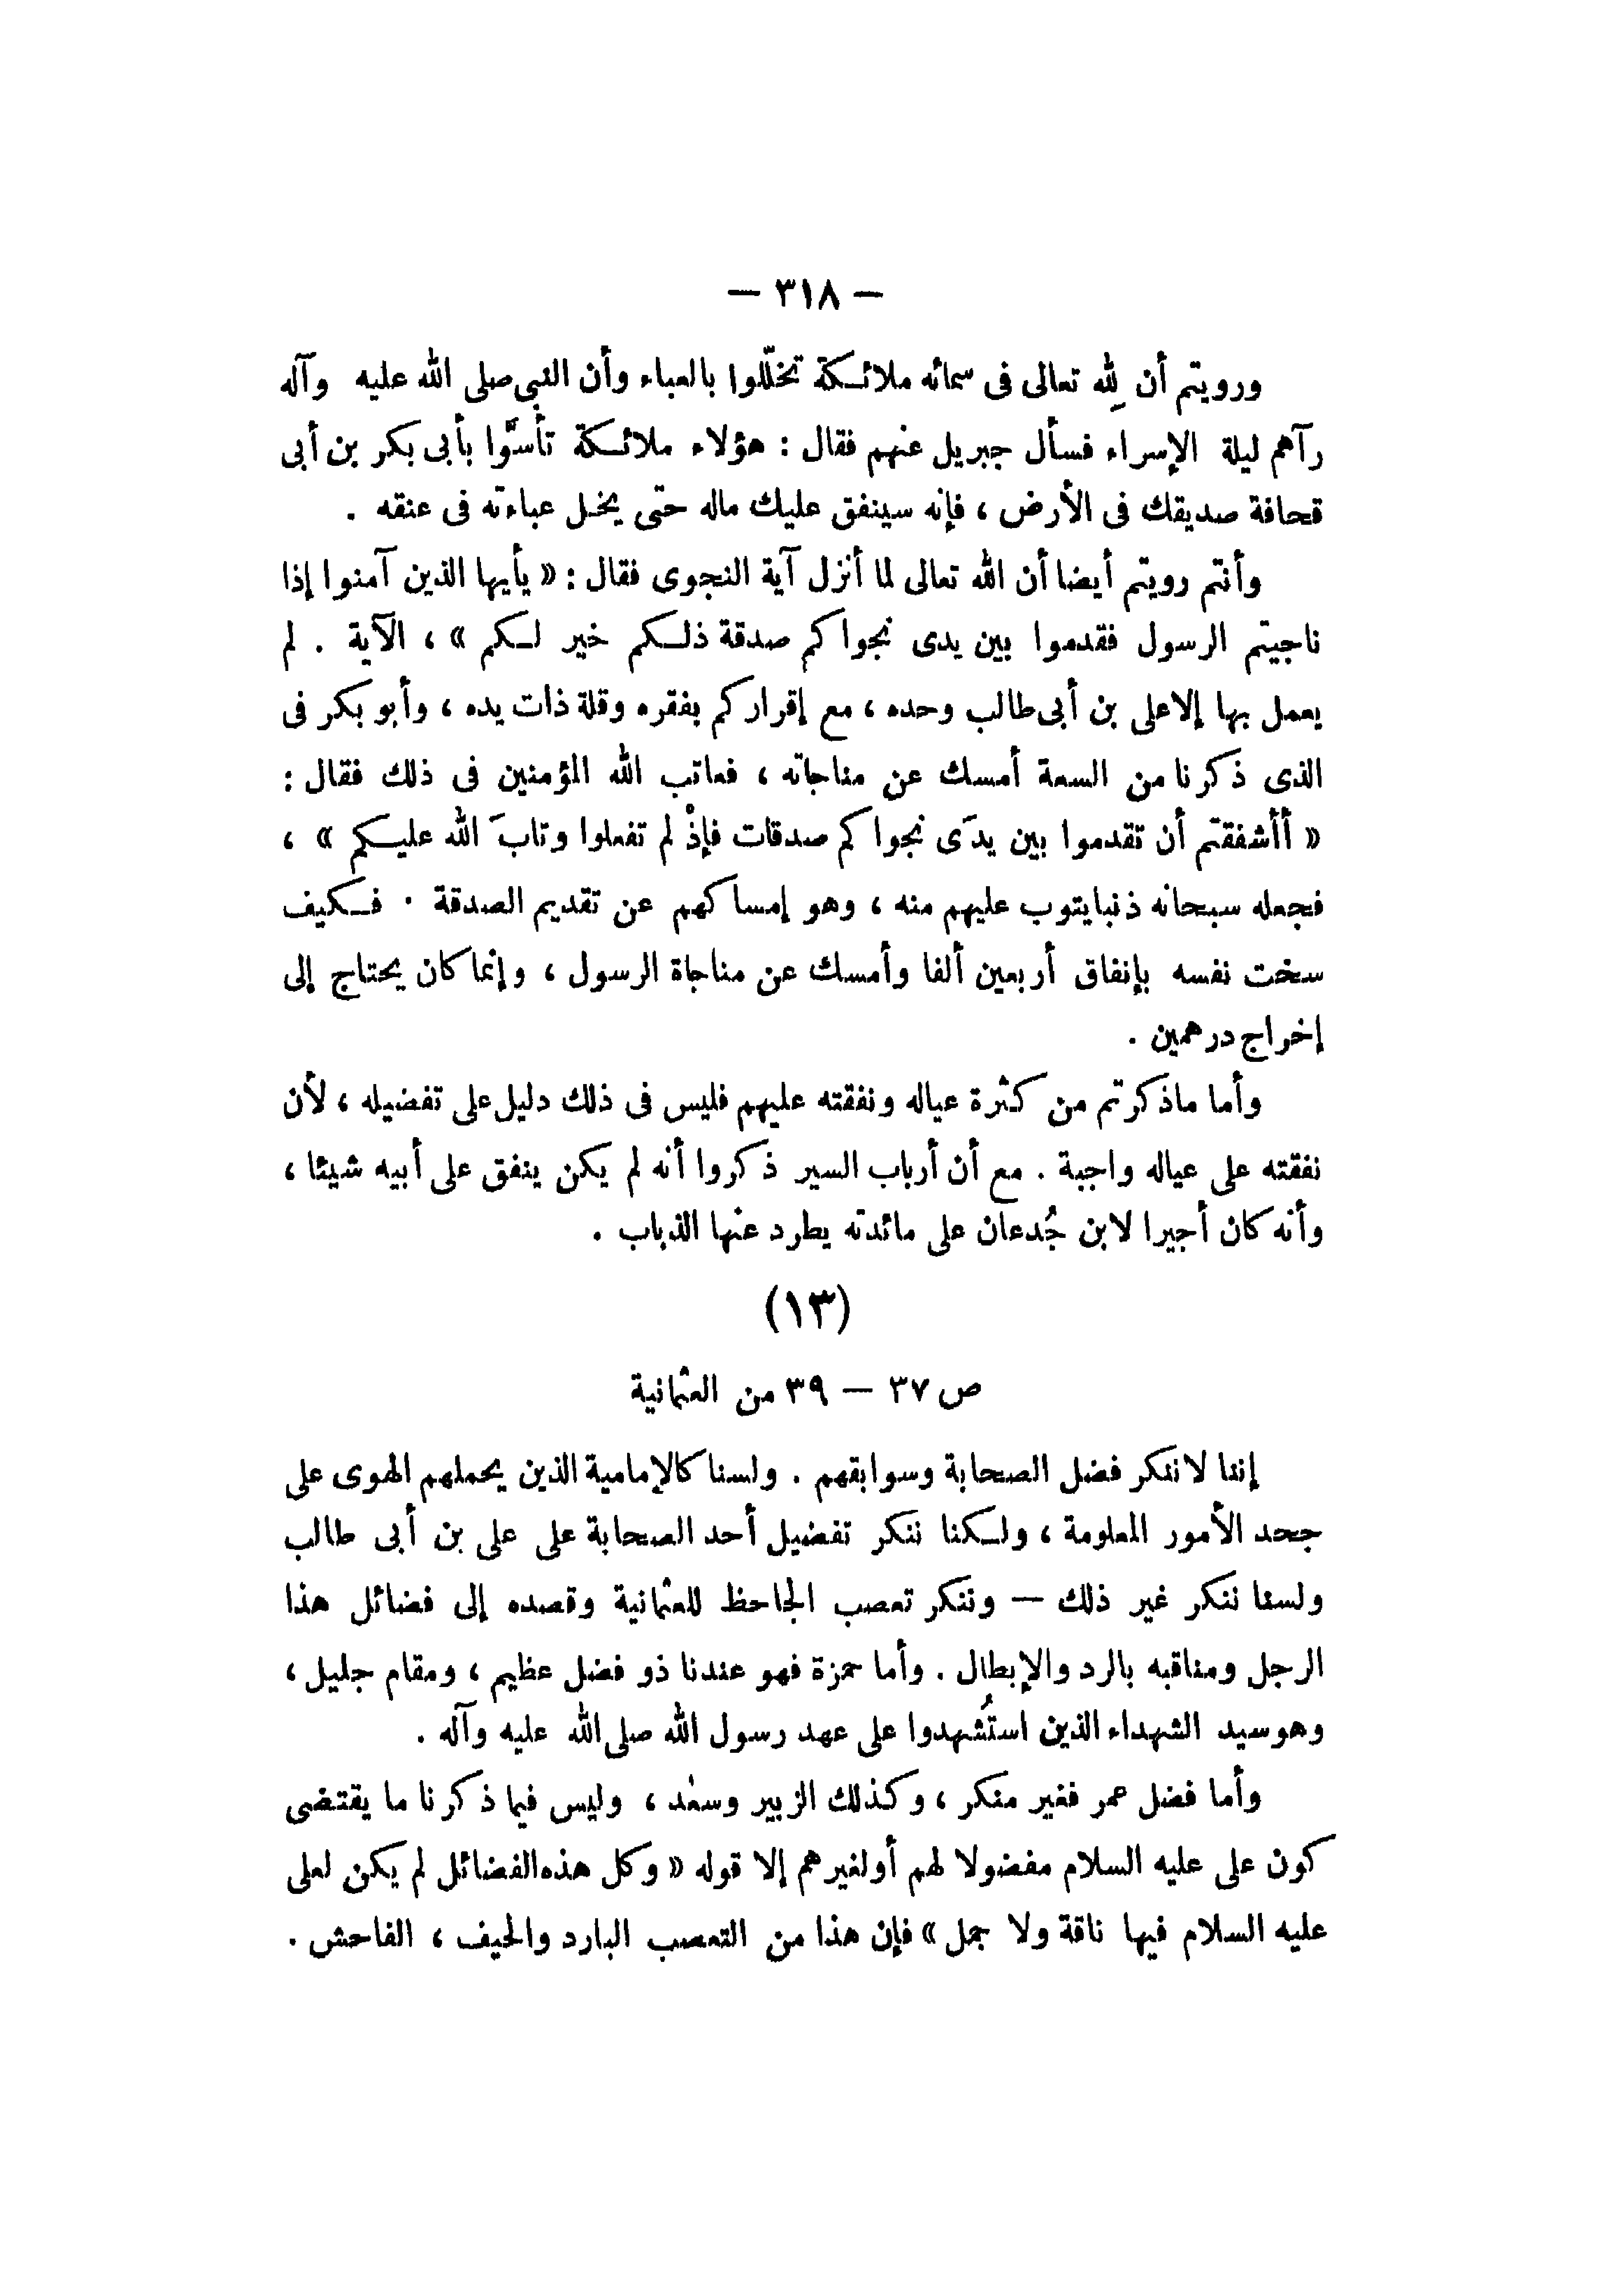 — ٣١٨ —
ورويتم أن لِلّه تعالى فى سمائه ملائكة تخلّلوا بالعباء وأن النبى صلى الله عليه وآله
رآهم ليلة الإسراء فسأل جبريل عنهم فقال : هؤلاء ملائكة تأسَّوا بأبى بكر بن أبى
قحافة صديقك فى الأرض ، فإنه سينفق عليك ماله حتى يخل عباءته فى عنقه .
وأنتم رويتم أيضا أن الله تعالى لما أنزل آية النجوى فقال : « يأيها الذين آمنوا إذا
ناجيتم الرسول فقدموا بين يدى نجواكم صدقة ذلكم خير لكم » ، الآية . لم
يعمل بها إلا على بن أبى طالب وحده ، مع إقراركم بفقره وقلة ذات يده ، وأبو بكر فى
الذى ذكرنا من السعة أمسك عن مناجاته ، فعاتب الله المؤمنين فى ذلك فقال :
« أأشفقتم أن تقدموا بين يدَى نجواكم صدقات فإذْ لم تفعلوا وتابَ الله عليكم » ،
فجعله سبحانه ذنبا يتوب عليهم منه ، وهو إمساكهم عن تقديم الصدقة . فكيف
سخت نفسه بإنفاق أربعين ألفا وأمسك عن مناجاة الرسول ، وإنما كان يحتاج إلى
إخراج درهمين .
وأما ماذكرتم من كثرة عياله ونفقته عليهم فليس فى ذلك دليل على تفضيله ، لأن
نفقته على عياله واجبة . مع أن أرباب السير ذكروا أنه لم يكن ينفق على أبيه شيئا ،
وأنه كان أجيرا لابن جُدعان على مائدته يطرد عنها الذباب .
(١٣)
ص ٣٧ — ٣٩ من العثمانية
إننا لا ننكر فضل الصحابة وسوابقهم . ولسنا كالإمامية الذين يحملهم الهوى على
جحد الأمور المعلومة ، ولكننا ننكر تفضيل أحد الصحابة على على بن أبى طالب
ولسنا ننكر غير ذلك — وننكر تعصب الجاحظ للعثمانية وقصده إلى فضائل هذا
الرجل ومناقبه بالرد والإبطال . وأما حمزة فهو عندنا ذو فضل عظيم ، ومقام جليل ،
وهو سيد الشهداء الذين استُشهدوا على عهد رسول الله صلى الله عليه وآله .
وأما فضل عمر فغير منكر ، وكذلك الزبير وسعد ، وليس فيما ذكرنا ما يقتضى
كون على عليه السلام مفضولا لهم أولغيرهم إلا قوله « وكل هذه الفضائل لم يكن لعلى
عليه السلام فيها ناقة ولا جمل » فإن هذا من التعصب البارد والحيف ، الفاحش .